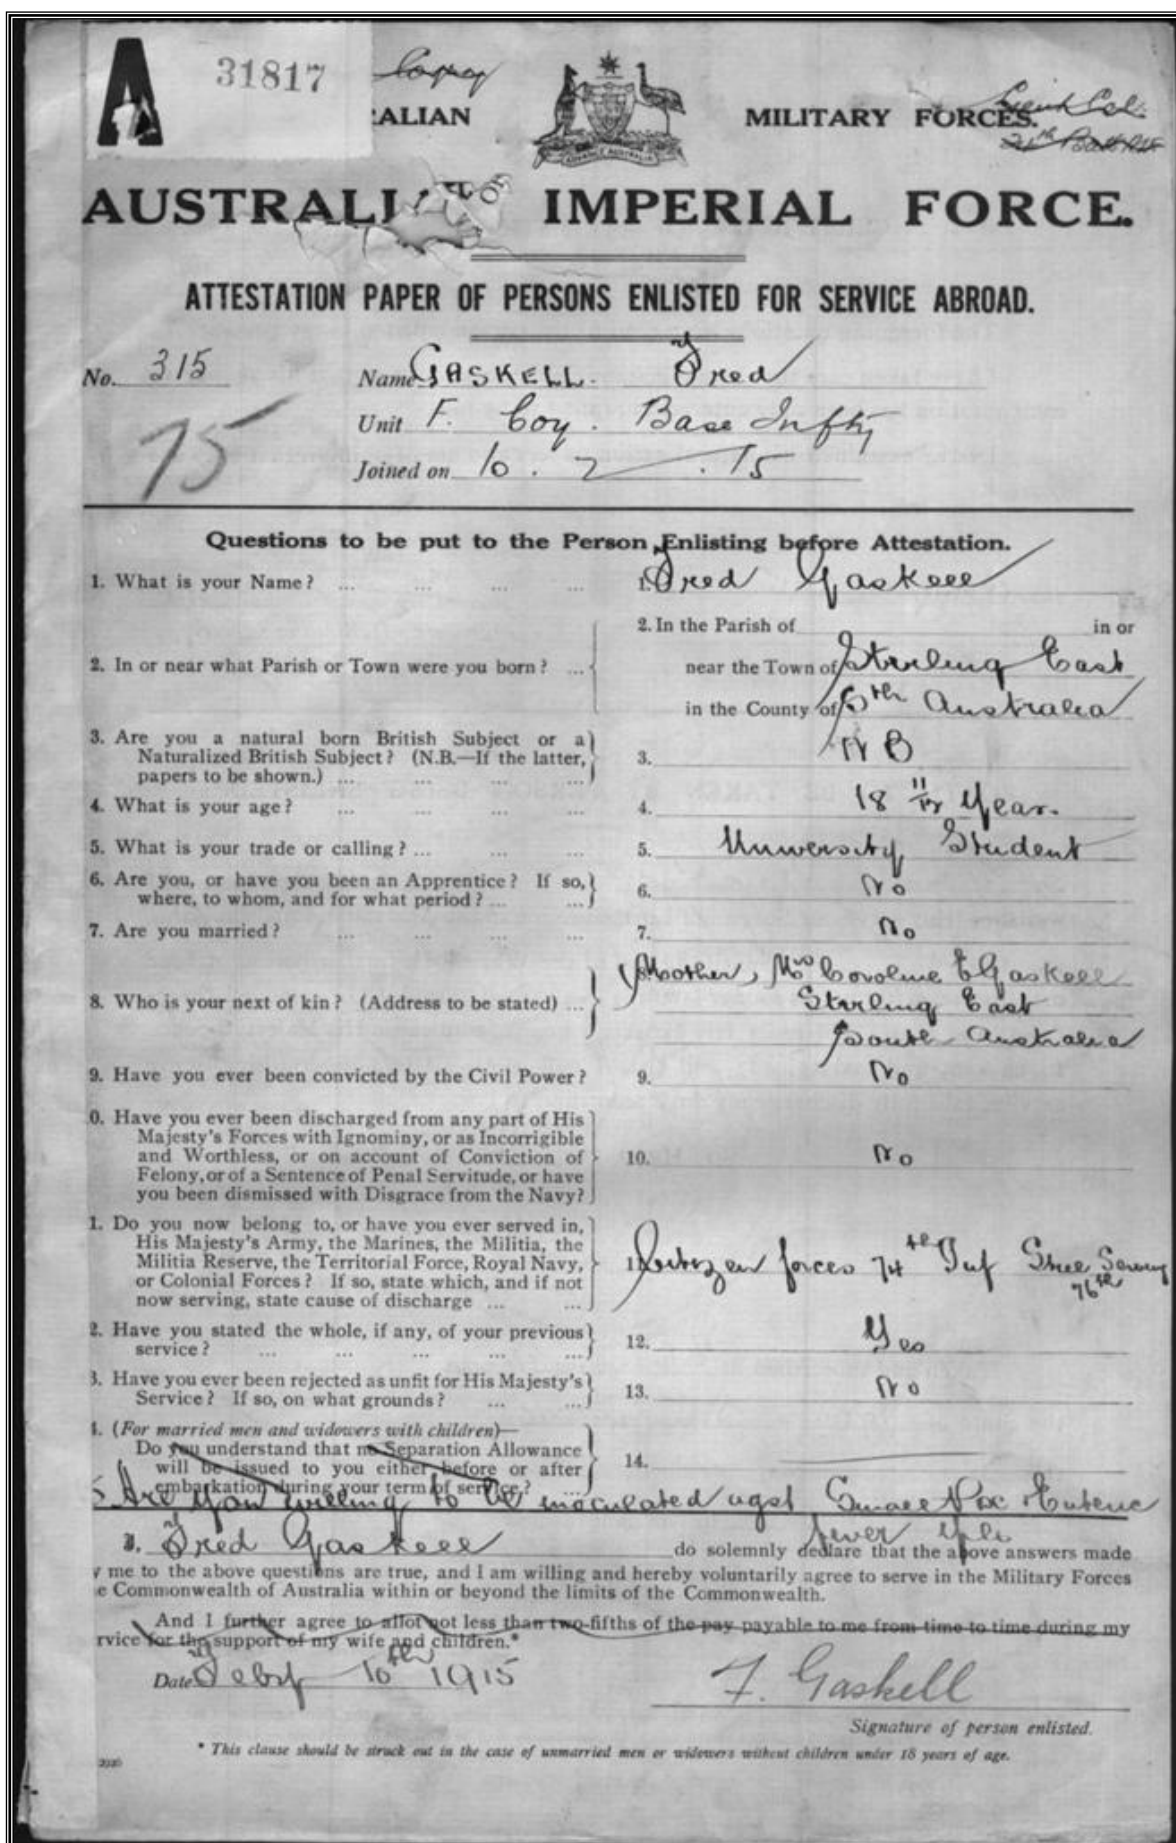 A 31817 Copy
ALIAN MILITARY FORCES.
ADVANCE AUSTRALIA
AUSTRALI IMPERIAL FORCE.
ATTESTATION PAPER OF PERSONS ENLISTED FOR SERVICE ABROAD.
No. 315 Name GASKELL. Fred
75 Unit F. Coy. Base Infty
Joined on 10. 2. 15
Questions to be put to the Person Enlisting before Attestation.
1. What is your Name? ... ... ... ... 1. Fred Gaskell
2. In the Parish of in or
2. In or near what Parish or Town were you born? ... near the Town of Stirling East
in the County of Sth Australia
3. Are you a natural born British Subject or a
Naturalized British Subject? (N.B.—If the latter, 3. N B
papers to be shown.) ... ... ... ...
4. What is your age? ... ... ... ... 4. 18 11/12 Year.
5. What is your trade or calling? ... ... ... 5. University Student
6. Are you, or have you been an Apprentice? If so, 6. No
where, to whom, and for what period? ... ...
7. Are you married? ... ... ... ... 7. No
8. Mother, Mrs Caroline E Gaskell
8. Who is your next of kin? (Address to be stated) ... Stirling East
South Australia
9. Have you ever been convicted by the Civil Power? 9. No
0. Have you ever been discharged from any part of His
Majesty's Forces with Ignominy, or as Incorrigible
and Worthless, or on account of Conviction of 10. No
Felony, or of a Sentence of Penal Servitude, or have
you been dismissed with Disgrace from the Navy?
1. Do you now belong to, or have you ever served in,
His Majesty's Army, the Marines, the Militia, the
Militia Reserve, the Territorial Force, Royal Navy, 11. Citizen forces 74th Inf
or Colonial Forces? If so, state which, and if not 76th
now serving, state cause of discharge ... ...
2. Have you stated the whole, if any, of your previous 12. Yes
service? ... ... ... ... ...
3. Have you ever been rejected as unfit for His Majesty's 13. No
Service? If so, on what grounds? ... ...
4. (For married men and widowers with children)—
Do you understand that no Separation Allowance
will be issued to you either before or after 14.
embarkation during your term of service? ...
5 Are you willing to be inoculated agst Small Pox & Enteric
fever Yes
I, Fred Gaskell do solemnly declare that the above answers made
y me to the above questions are true, and I am willing and hereby voluntarily agree to serve in the Military Forces
e Commonwealth of Australia within or beyond the limits of the Commonwealth.
And I further agree to allot not less than two-fifths of the pay payable to me from time to time during my
rvice for the support of my wife and children.*
Date Feby 10th 1915 F. Gaskell
Signature of person enlisted.
* This clause should be struck out in the case of unmarried men or widowers without children under 18 years of age.